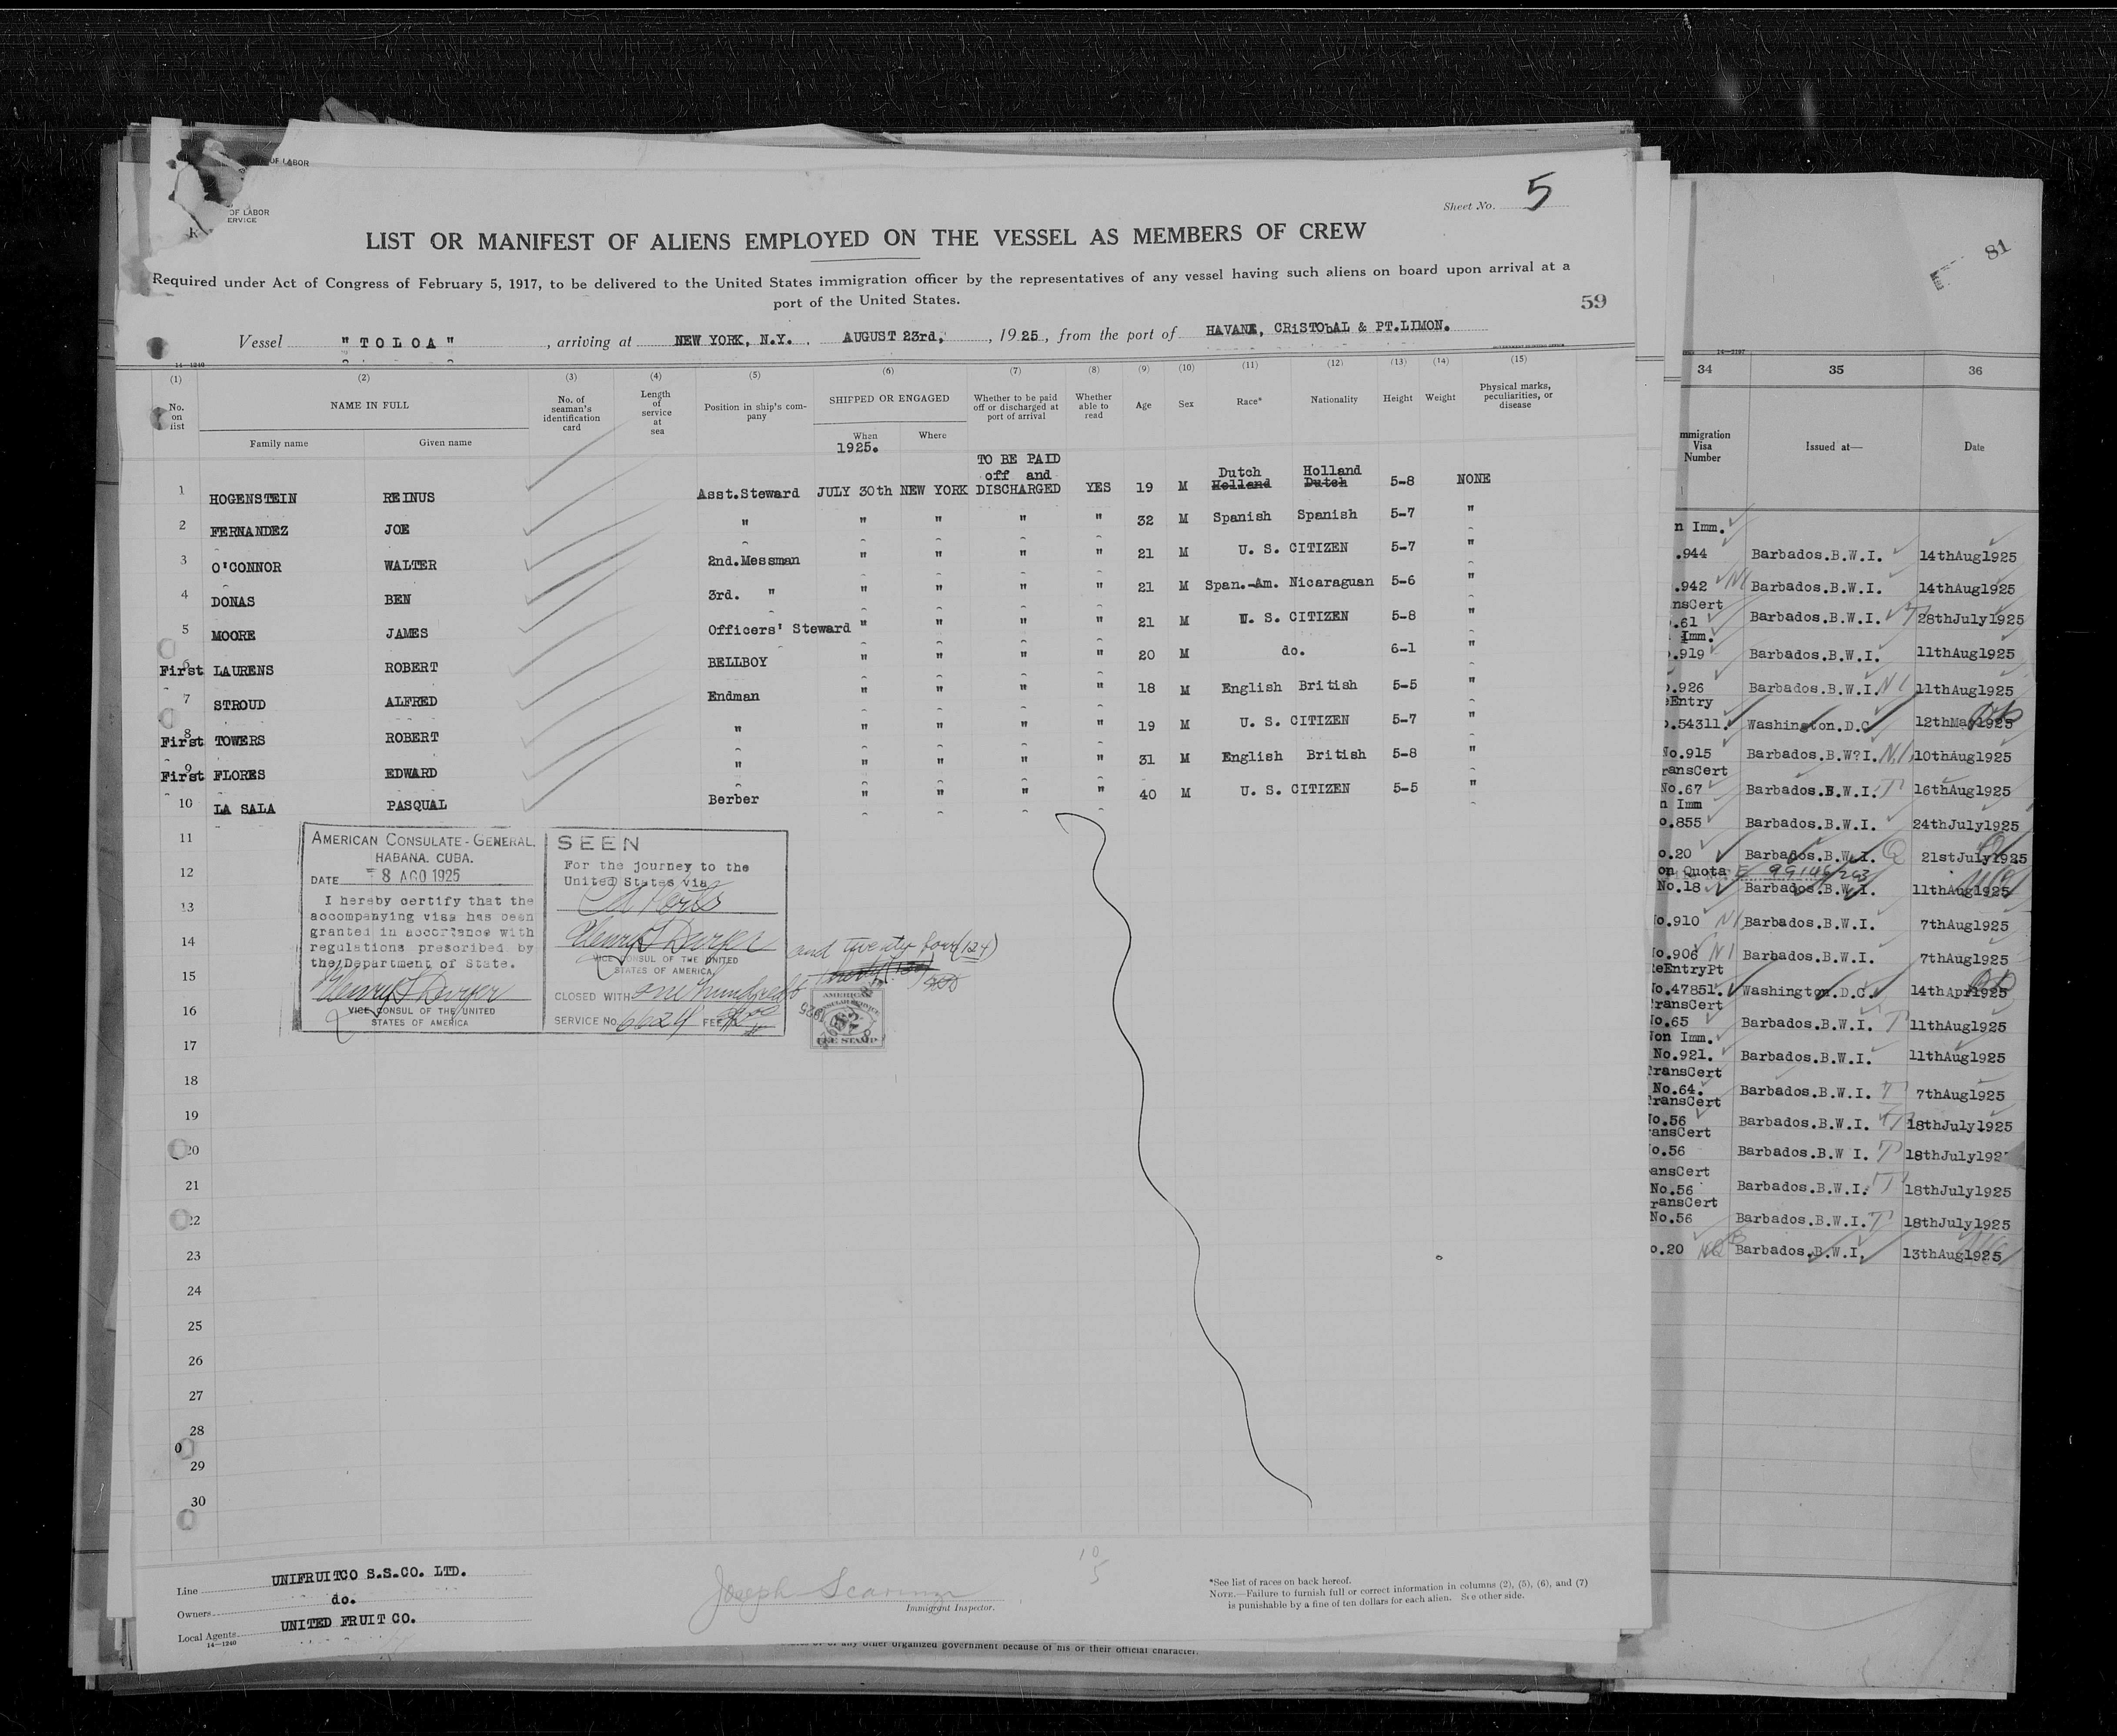 OF LABOR
OF LABOR
ERVICE
Sheet No. 5
LIST OR MANIFEST OF ALIENS EMPLOYED ON THE VESSEL AS MEMBERS OF CREW
Required under Act of Congress of February 5, 1917, to be delivered to the United States immigration officer by the representatives of any vessel having such aliens on board upon arrival at a
port of the United States.
59
Vessel "TOLOA", arriving at NEW YORK, N.Y. AUGUST 23rd, , 1925, from the port of HAVANA, CRiSTObAL & PT.LIMON.
14—1240
(1) (2) (3) (4) (5) (6) (7) (8) (9) (10) (11) (12) (13) (14) (15)
No. on list NAME IN FULL No. of seaman's identification card Length of service at sea Position in ship's company SHIPPED OR ENGAGED Whether to be paid off or discharged at port of arrival Whether able to read Age Sex Race* Nationality Height Weight Physical marks, peculiarities, or disease
Family name Given name When Where
1925.
TO BE PAID
off and Dutch Holland
1 HOGENSTEIN REINUS Asst.Steward JULY 30th NEW YORK DISCHARGED YES 19 M Holland Dutch 5-8 NONE
2 FERNANDEZ JOE " " " " " 32 M Spanish Spanish 5-7 "
3 O'CONNOR WALTER 2nd.Messman " " " " 21 M U. S. CITIZEN 5-7 "
4 DONAS BEN 3rd. " " " " " 21 M Span.-Am. Nicaraguan 5-6 "
5 MOORE JAMES Officers' Steward " " " " 21 M U. S. CITIZEN 5-8 "
6 First LAURENS ROBERT BELLBOY " " " " 20 M do. 6-1 "
7 STROUD ALFRED Endman " " " " 18 M English British 5-5 "
8 First TOWERS ROBERT " " " " " 19 M U. S. CITIZEN 5-7 "
9 First FLORES EDWARD " " " " " 31 M English British 5-8 "
10 LA SALA PASQUAL Berber " " " " 40 M U. S. CITIZEN 5-5 "
11
12
13
14
15
16
17
18
19
20
21
22
23
24
25
26
27
28
29
30
AMERICAN CONSULATE-GENERAL.
HABANA. CUBA.
DATE 8 AGO 1925
I hereby certify that the
accompanying visa has been
granted in accordance with
regulations prescribed by
the Department of State.
VICE CONSUL OF THE UNITED
STATES OF AMERICA
SEEN
For the journey to the
United States via
VICE CONSUL OF THE UNITED
STATES OF AMERICA
CLOSED WITH one hundred
and twenty four (124)
SERVICE No. 6624 FEE
AMERICAN
CONSULAR SERVICE
FEE STAMP
Line UNIFRUITCO S.S.CO. LTD.
Owners do.
Local Agents UNITED FRUIT CO.
14—1240
10
5
Joseph
Immigrant Inspector.
*See list of races on back hereof.
NOTE.—Failure to furnish full or correct information in columns (2), (5), (6), and (7)
is punishable by a fine of ten dollars for each alien. See other side.
any other organized government because of his or their official character.
81
34 35 36
mmigration Visa Number Issued at— Date
n Imm.
.944 Barbados.B.W.I. 14thAug1925
.942 NI Barbados.B.W.I. 14thAug1925
nsCert
.61 Barbados.B.W.I. T 28thJuly1925
Imm.
.919 Barbados.B.W.I. 11thAug1925
.926 Barbados.B.W.I. NI 11thAug1925
eEntry
.54311. Washington.D.C 12thMay1925
No.915 Barbados.B.W?I. NI 10thAug1925
ransCert
No.67 Barbados.B.W.I. T 16thAug1925
n Imm
o.855 Barbados.B.W.I. 24thJuly1925
o.20 Barbados.B.W.I. Q 21stJuly1925
on Quota
No.18 Barbados.B.W.I. 11thAug1925
No.910 NI Barbados.B.W.I. 7thAug1925
No.906 NI Barbados.B.W.I. 7thAug1925
ReEntryPt
No.47851. Washington.D.C. 14thApr1925
TransCert
No.65 Barbados.B.W.I. T 11thAug1925
Non Imm.
No.921. Barbados.B.W.I. 11thAug1925
TransCert
No.64. Barbados.B.W.I. T 7thAug1925
TransCert
No.56 Barbados.B.W.I. T 18thJuly1925
ansCert
o.56 Barbados.B.W I. T 18thJuly192
ansCert
No.56 Barbados.B.W.I. T 18thJuly1925
ransCert
No.56 Barbados.B.W.I. T 18thJuly1925
o.20 Barbados.B.W.I. 13thAug1925